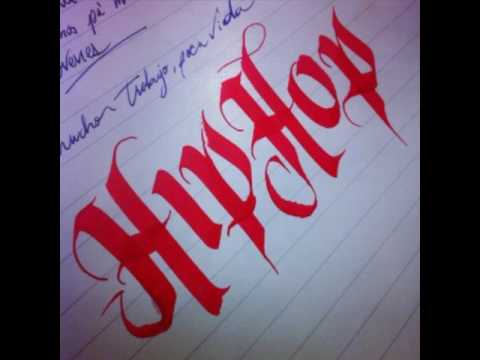 jovenes
mucho trabajo, poca vida
HipHop